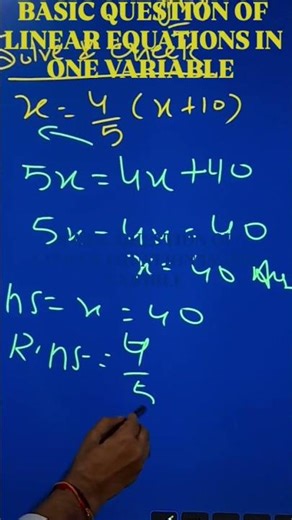 BASIC QUESTION OF
LINEAR EQUATIONS IN
ONE VARIABLE
Solve & check
x = 4/5 (x+10)
5x = 4x+40
5x - 4x = 40
x = 40 Ans
hs = x = 40
R.hs = 4/5